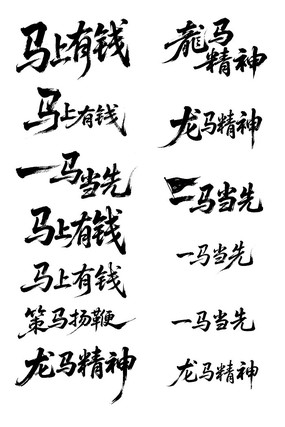 马上有钱
马上有钱
一马当先
马上有钱
马上有钱
策马扬鞭
龙马精神
龍马
精神
龙马精神
一马当先
一马当先
一马当先
龙马精神